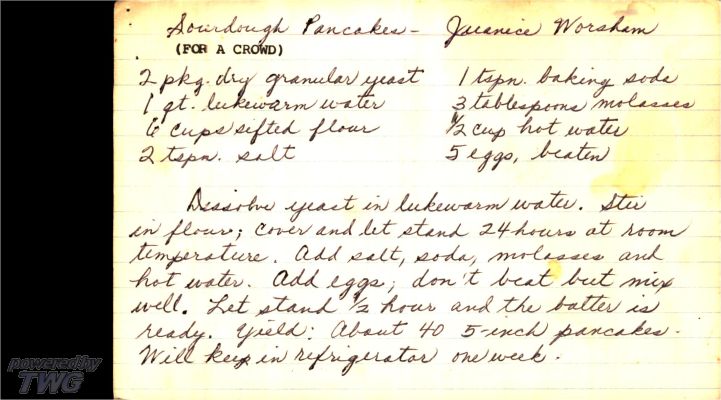 Sourdough Pancakes - Juanice Worsham
(FOR A CROWD)
2 pkg. dry granular yeast
1 qt. lukewarm water
6 cups sifted flour
2 tspn. salt
1 tspn. baking soda
3 tablespoons molasses
1/2 cup hot water
5 eggs, beaten
Dissolve yeast in lukewarm water. Stir
in flour; cover and let stand 24 hours at room
temperature. Add salt, soda, molasses and
hot water. Add eggs; don't beat but mix
well. Let stand 1/2 hour and the batter is
ready. Yield: About 40 5-inch pancakes.
Will keep in refrigerator one week.
powered by
TWG